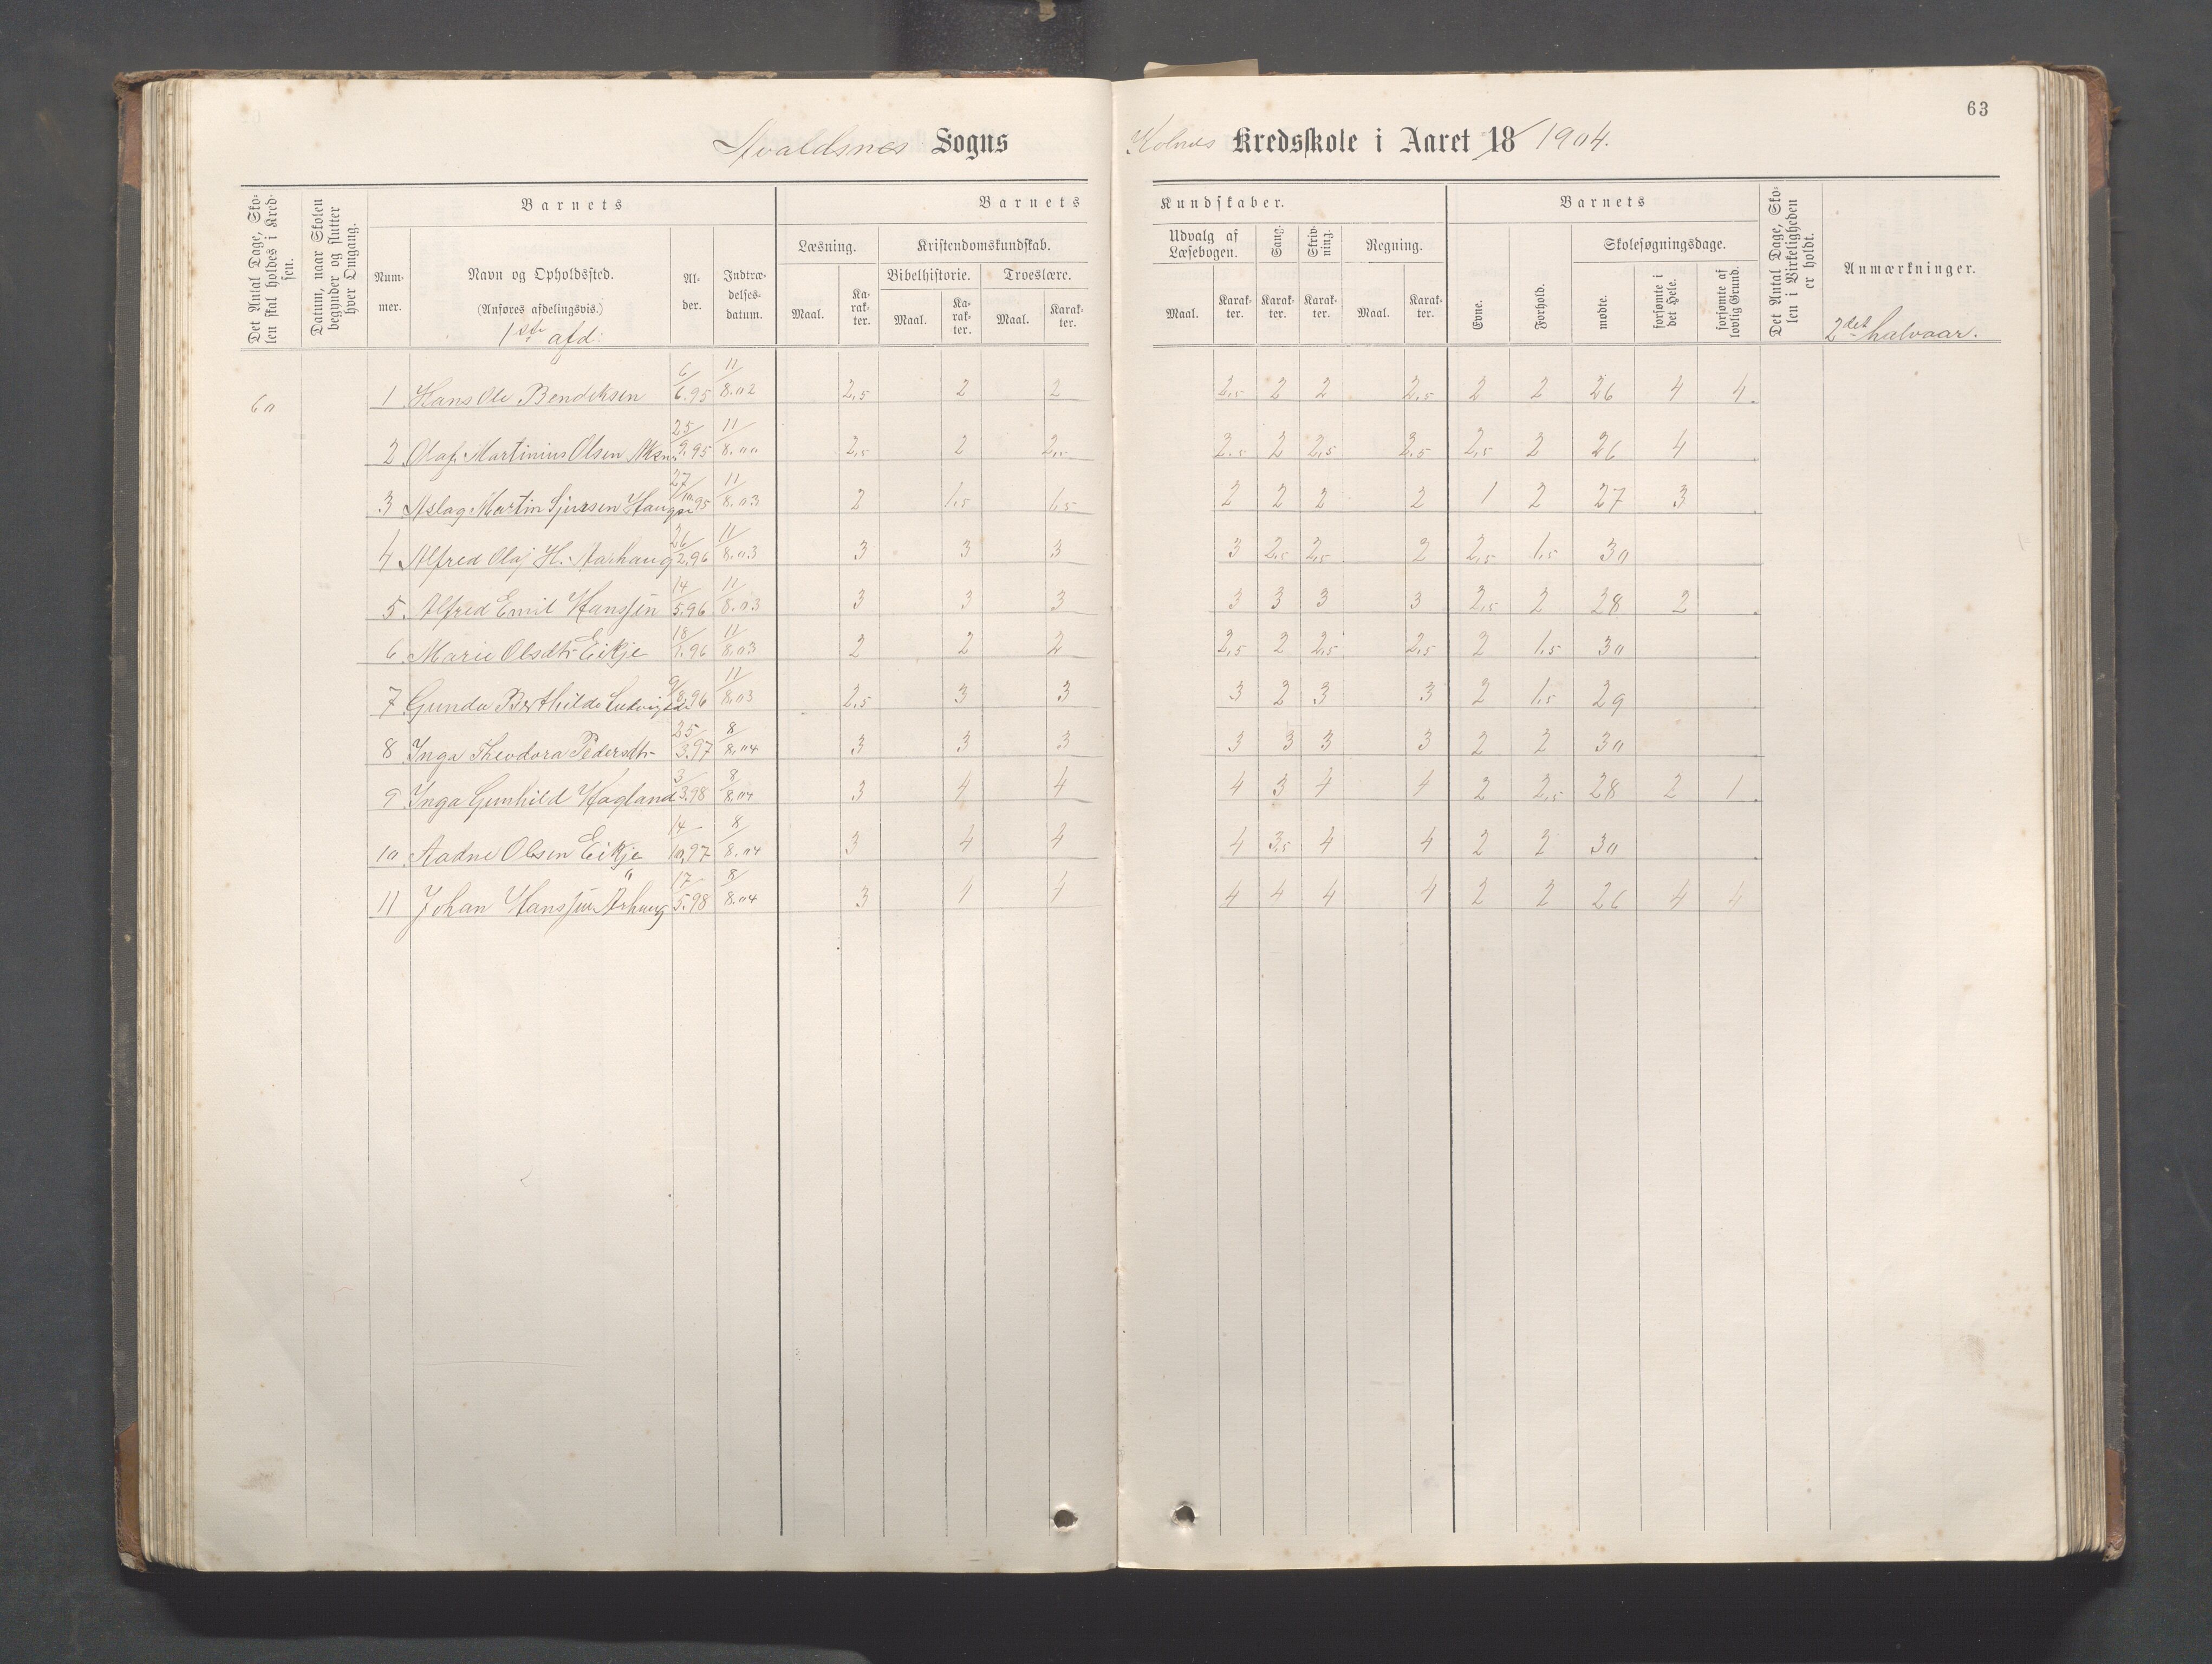 63
Avaldsnes Sogns
Kolnes Kredsskole i Aaret 18 1904.
Det Antal Dage, Skolen skal holdes i Kredsen.
Datum, naar Skolen begynder og slutter hver Omgang.
Barnets
Nummer.
Navn og Opholdssted.
(Anføres afdelingsvis.)
1ste afd.
Alder.
Indtrædelsesdatum.
Barnets
Læsning.
Kristendomskundskab.
Bibelhistorie.
Troeslære.
Maal.
Karakter.
Maal.
Karakter.
Maal.
Karakter.
Kundskaber.
Udvalg af Læsebogen.
Sang.
Skrivning.
Regning.
Maal.
Karakter.
Karakter.
Karakter.
Maal.
Karakter.
Barnets
Evne.
Forhold.
Skolesøgningsdage.
mødte.
forsømte i det Hele.
forsømte af lovlig Grund.
Det Antal Dage, Skolen i Virkeligheden er holdt.
Anmærkninger.
2det halvaar.
60 1 Hans Ole Bendiksen 6/6.95 11/8.02 2,5 2 2 2,5 2 2 2,5 2 2 26 4 4
2 Olaf Martinius Olsen 25/9.95 11/8.00 2,5 2 2,5 2,5 2 2,5 2,5 2,5 2 26 4
3 Aslag Martin Sjursen 27/10.95 11/8.03 2 1,5 1,5 2 2 2 2 1 2 27 3
4 Alfred Olaf H. Aarhaug 26/2.96 11/8.03 3 3 3 3 2,5 2,5 2 2,5 1,5 30
5 Alfred Emil Hanssen 14/5.96 11/8.03 3 3 3 3 3 3 3 2,5 2 28 2
6 Marie Olsdtr Eikje 18/1.96 11/8.03 2 2 2 2,5 2 2,5 2,5 2 1,5 30
7 Gunda Berthilde 9/8.96 11/8.03 2,5 3 3 3 2 3 3 2 1,5 29
8 Inga Theodora Pedersdtr 25/3.97 8/8.04 3 3 3 3 3 3 3 2 2 30
9 Inga Gunhild Hagland 3/3.98 8/8.04 3 4 4 4 3 4 4 2 2,5 28 2 1
10 Aadne Olsen Eikje 14/10.97 8/8.04 3 4 4 4 3,5 4 4 2 2 30
11 Johan Hanssen Århaug 17/5.98 8/8.04 3 4 4 4 4 4 4 2 2 26 4 4